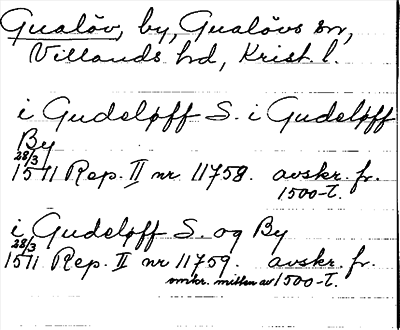 Gualöv, by, Gualövs sn,
Villands hd, Krist. l.
i Gudeløff S. i Gudeløff
By
28/3
1511 Rep. II nr 11758. avskr. fr.
1500-t.
i Gudeløff S. og By
28/3
1511 Rep. II nr 11759. avskr. fr.
omkr. mitten av 1500-t.